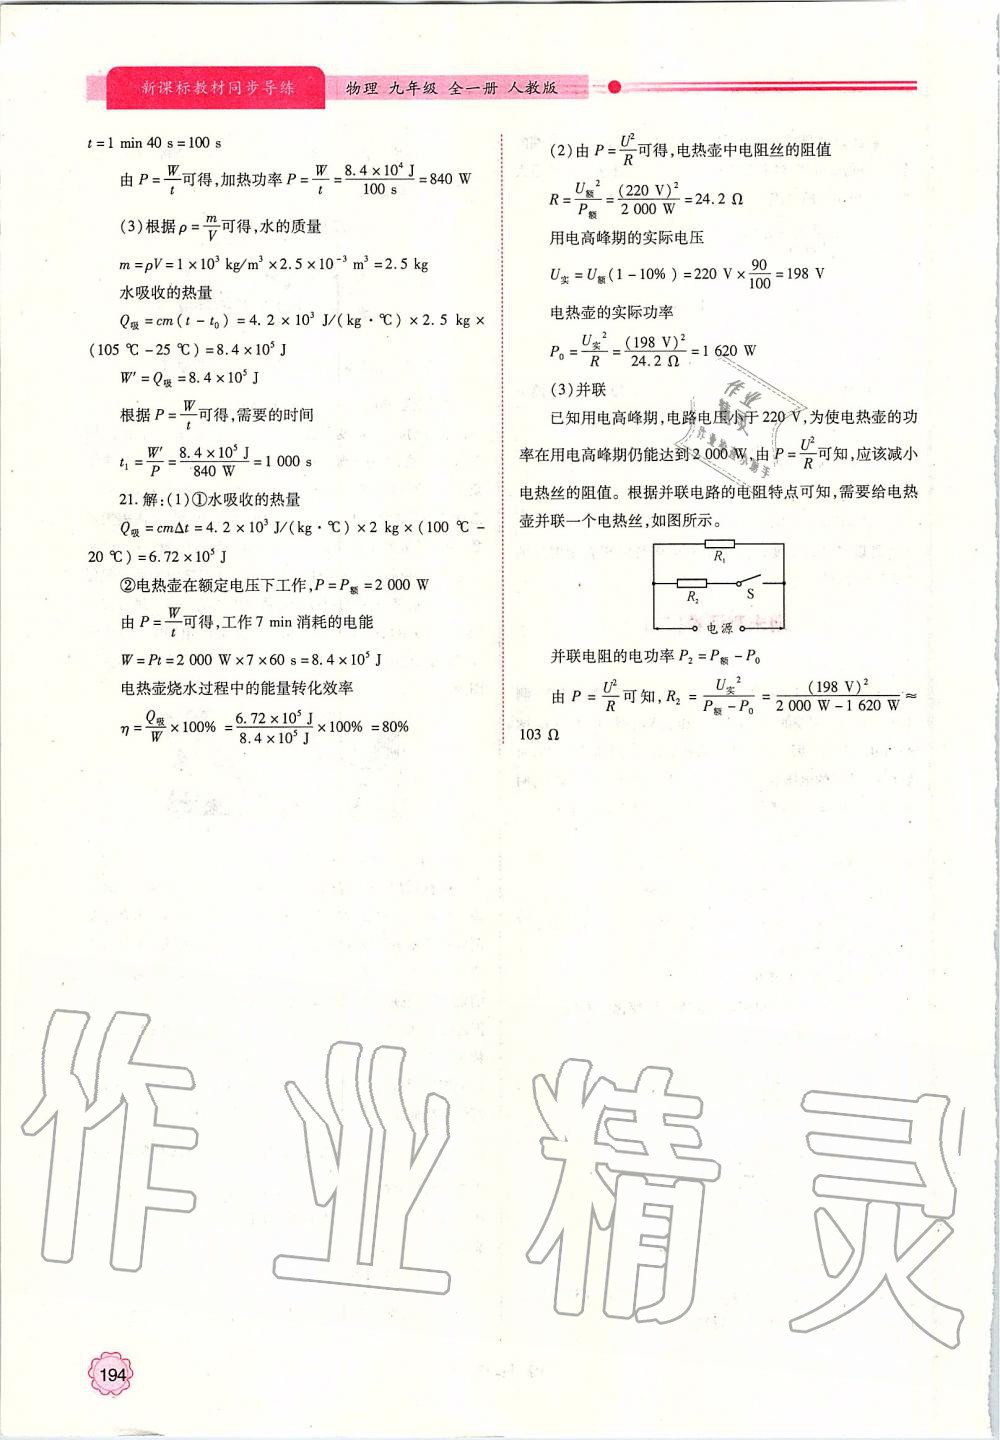 新课标教材同步导练
物理 九年级 全一册 人教版
t=1 min 40 s=100 s
由 P=W/t可得,加热功率 P=W/t=8.4×10⁴ J/100 s=840 W
(3)根据ρ=m/V可得,水的质量
m=ρV=1×10³ kg/m³×2.5×10⁻³ m³=2.5 kg
水吸收的热量
Q吸=cm(t-t₀)=4.2×10³ J/(kg·℃)×2.5 kg×
(105 ℃-25 ℃)=8.4×10⁵ J
W′=Q吸=8.4×10⁵ J
根据 P=W/t可得,需要的时间
t₁=W′/P=8.4×10⁵ J/840 W=1 000 s
21. 解:(1)①水吸收的热量
Q吸=cmΔt=4.2×10³ J/(kg·℃)×2 kg×(100 ℃-
20 ℃)=6.72×10⁵ J
②电热壶在额定电压下工作,P=P额=2 000 W
由 P=W/t可得,工作 7 min 消耗的电能
W=Pt=2 000 W×7×60 s=8.4×10⁵ J
电热壶烧水过程中的能量转化效率
η=Q吸/W×100%=6.72×10⁵ J/8.4×10⁵ J×100%=80%
(2)由 P=U²/R可得,电热壶中电阻丝的阻值
R=U额²/P额=(220 V)²/2 000 W=24.2 Ω
用电高峰期的实际电压
U实=U额(1-10%)=220 V×90/100=198 V
电热壶的实际功率
P₀=U实²/R=(198 V)²/24.2 Ω=1 620 W
(3)并联
已知用电高峰期,电路电压小于 220 V,为使电热壶的功
率在用电高峰期仍能达到 2 000 W,由 P=U²/R可知,应该减小
电热丝的阻值。根据并联电路的电阻特点可知,需要给电热
壶并联一个电热丝,如图所示。
R₁
R₂ S
电源
并联电阻的电功率 P₂=P额-P₀
由 P=U²/R可知,R₂=U实²/P额-P₀=(198 V)²/2 000 W-1 620 W≈
103 Ω
作业精灵
194